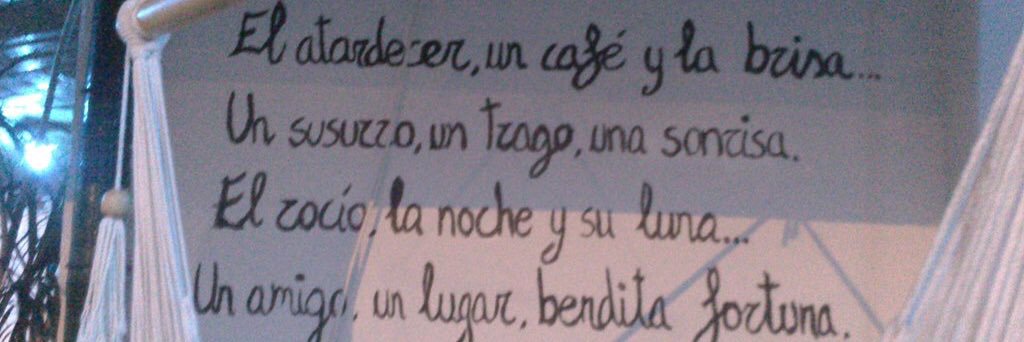 El atardecer, un café y la brisa...
Un susurro, un trago, una sonrisa.
El rocío, la noche y su luna...
Un amigo, un lugar, bendita fortuna.